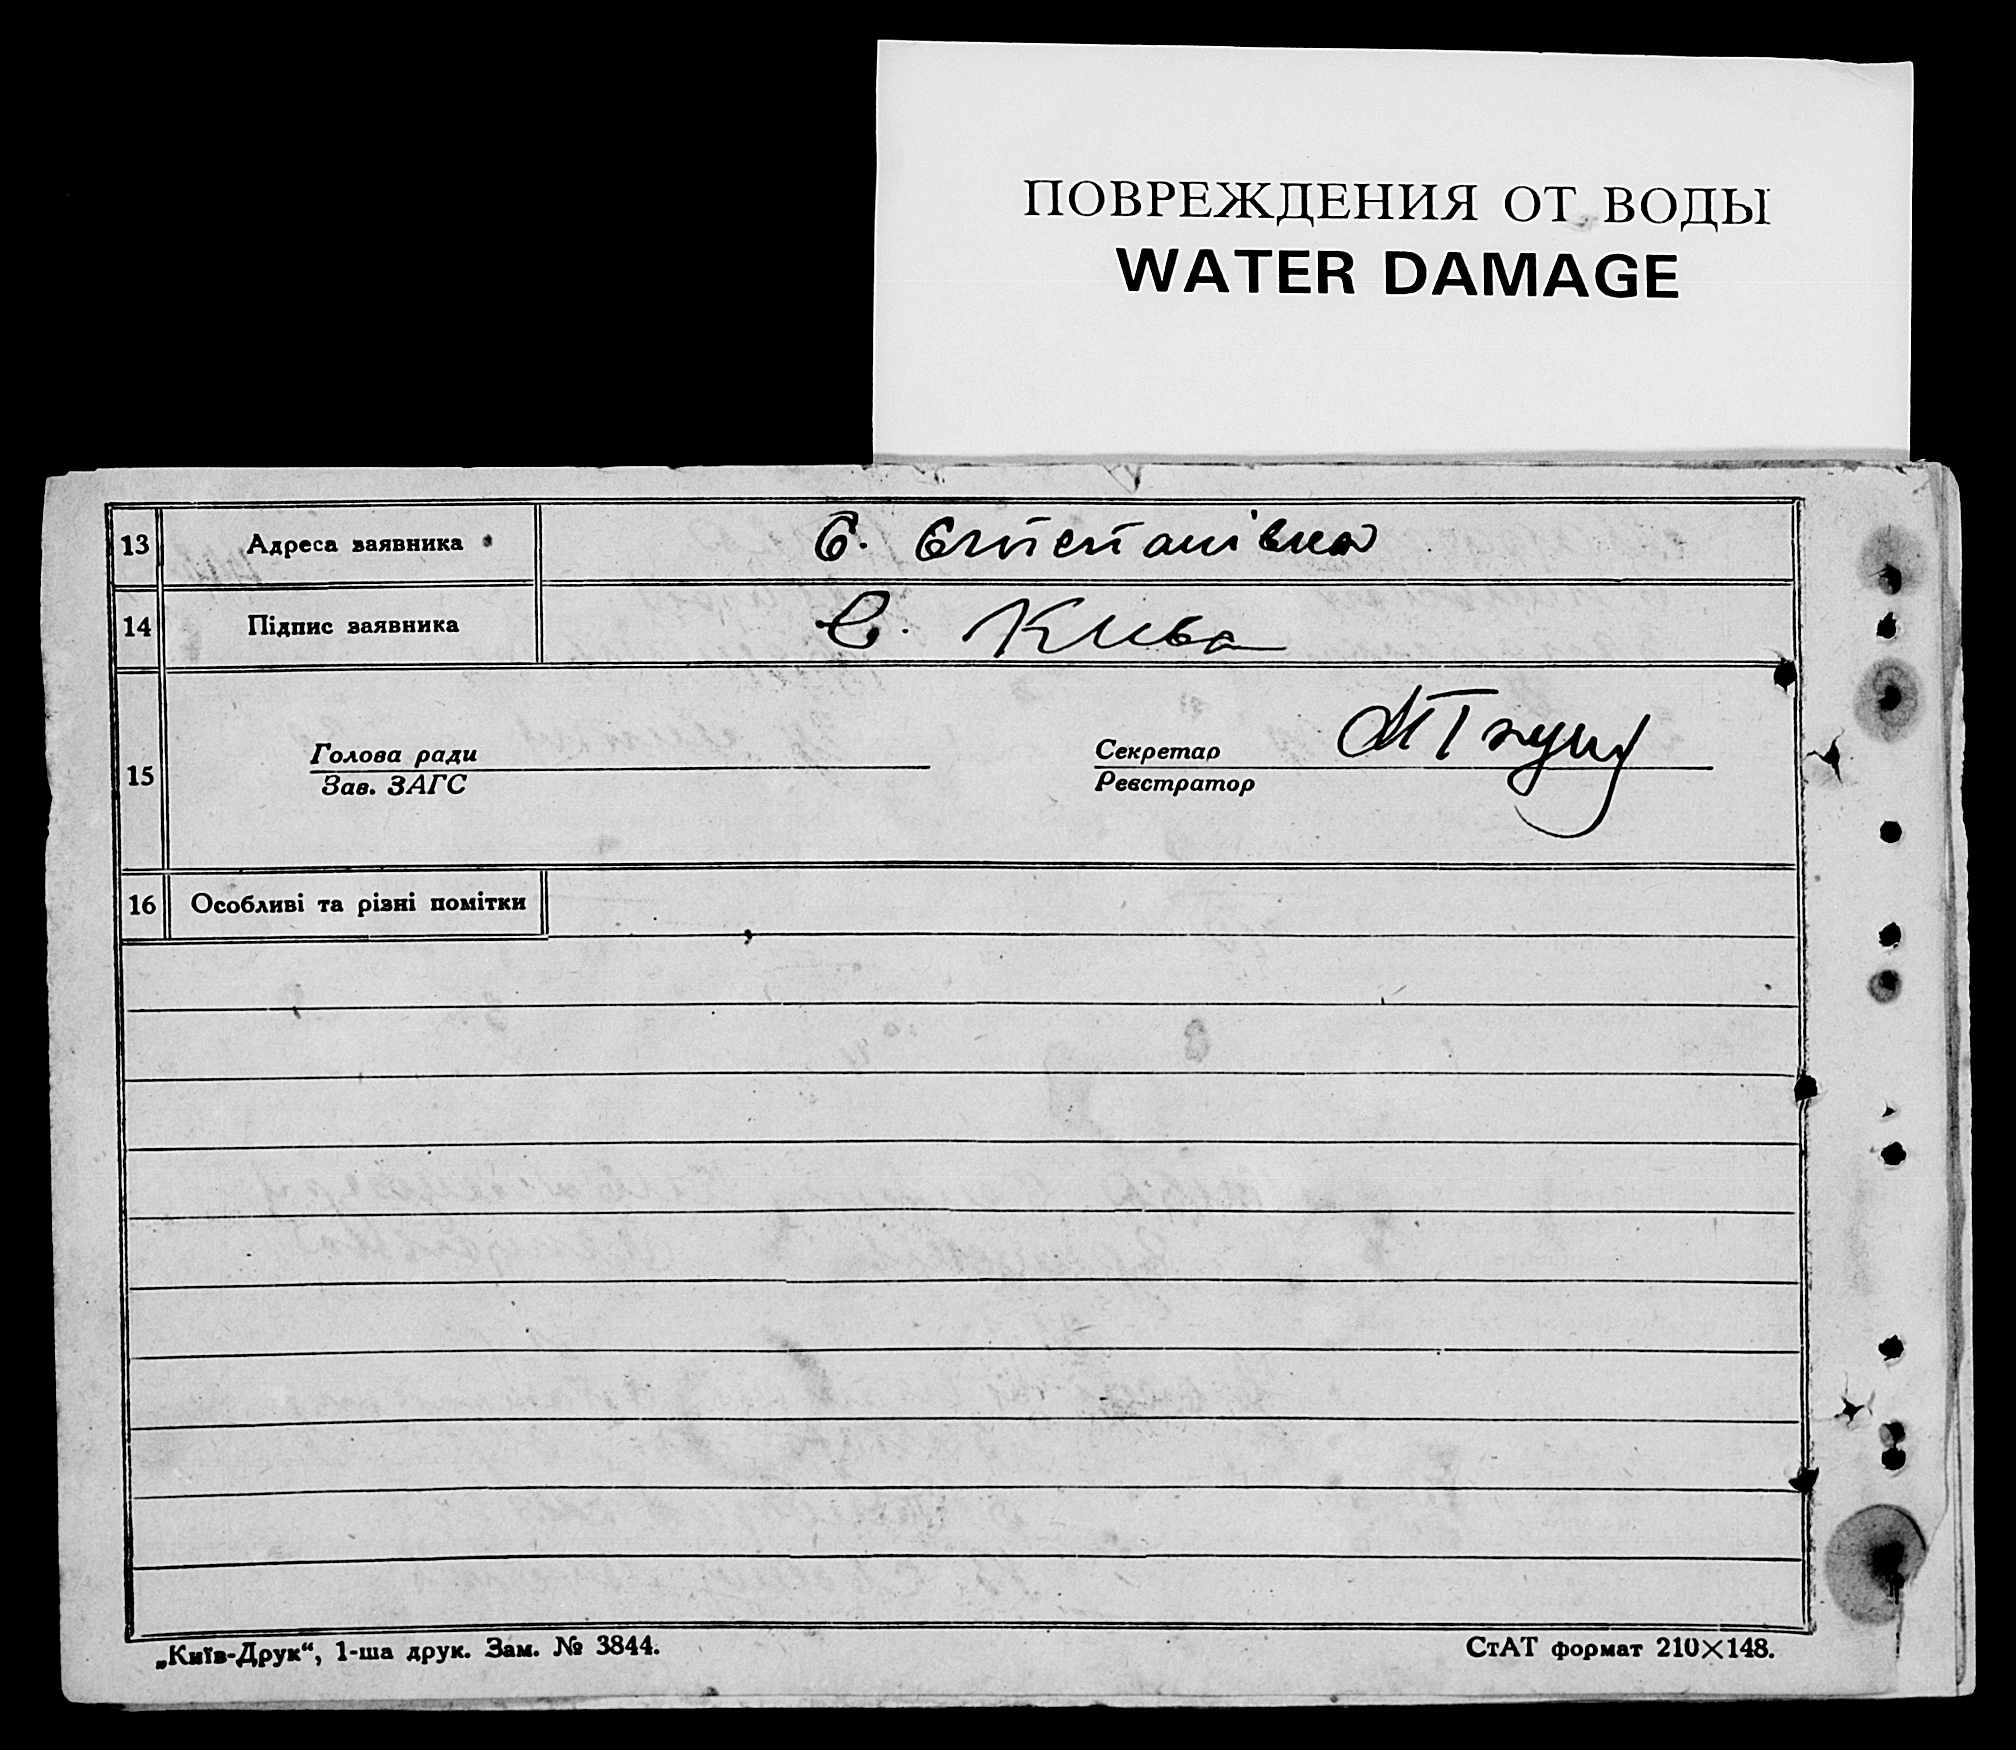 ПОВРЕЖДЕНИЯ ОТ ВОДЫ
WATER DAMAGE
13 Адреса заявника С. Степанівка
14 Підпис заявника Є. Кива
Голова ради Секретар
15
Зав. ЗАГС Реєстратор
16 Особливі та різні помітки
„Київ-Друк“, 1-ша друк. Зам. № 3844. СтАТ формат 210×148.